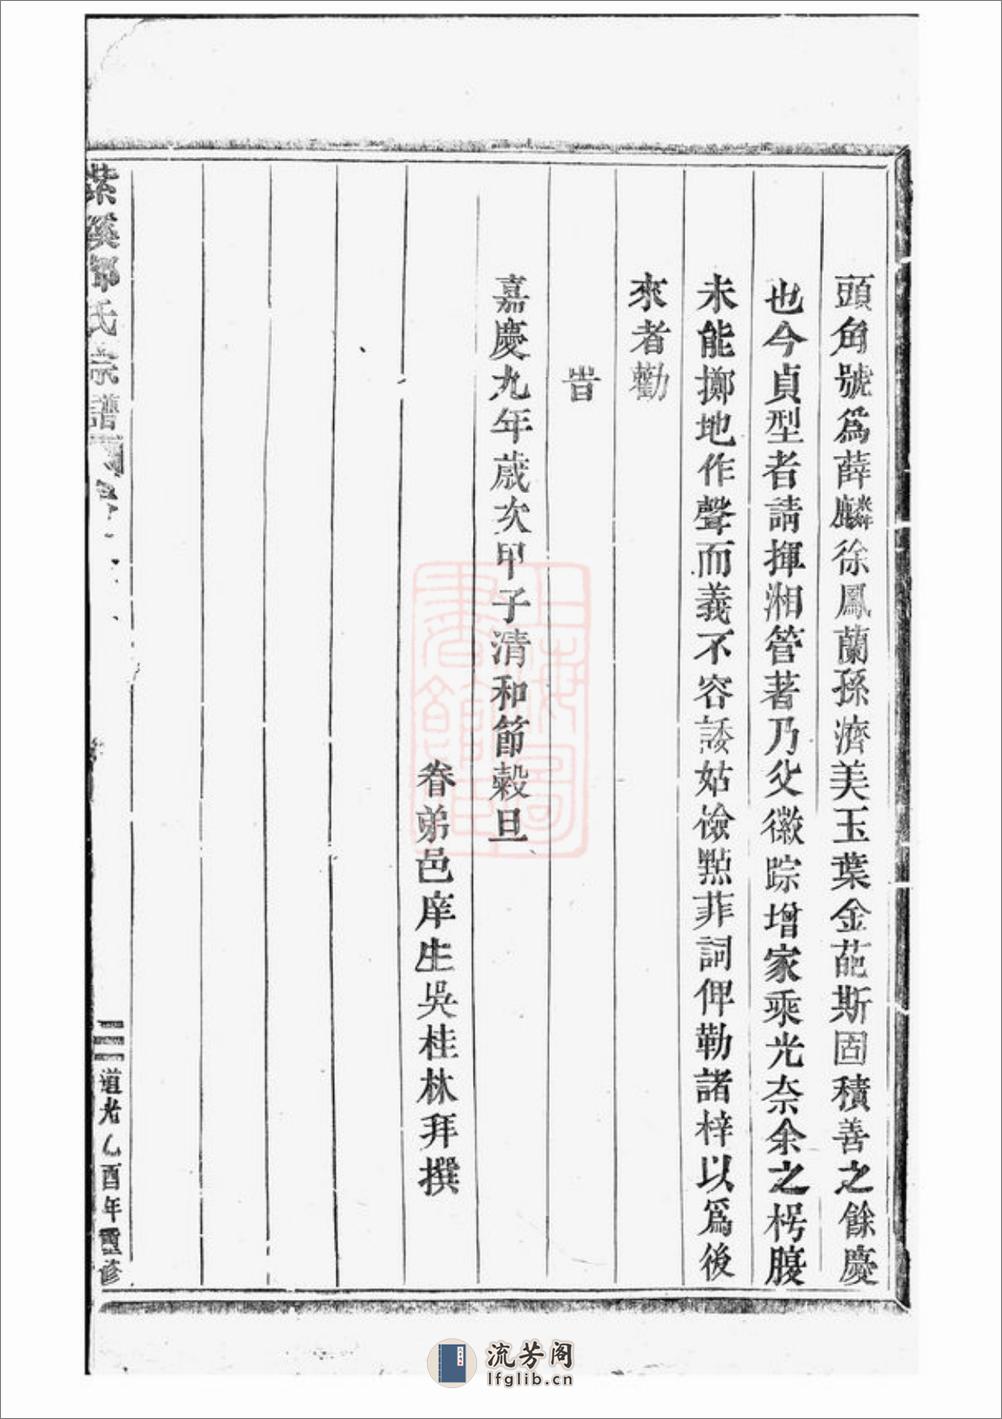 頭角號爲薛麟徐鳳蘭孫濟美玉葉金葩斯固積善之餘慶
也今貞型者請揮湘管著乃父徽踪增家乘光奈余之枵腹
未能擲地作聲而義不容諉姑檢點菲詞俾勒諸梓以爲後
來者勸
旹
嘉慶九年歲次甲子清和節榖旦
眷弟邑庠生吳桂林拜撰
紫溪 氏宗譜
道光乙酉年重修
上海圖書館藏
流芳阁
lfglib.cn